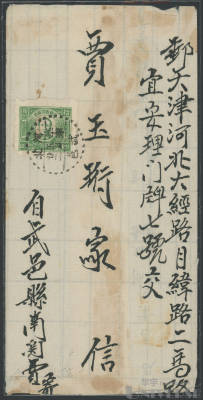 郵天津河北大經路月緯路二馬路
宜安理门牌七號交
賈玉珩家信
自武邑縣南関賈寄